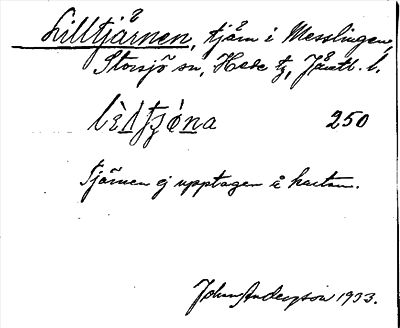 Lilltjärnen, tjärn i Messlingen,
Storsjö sn, Hede tg, Jämtl. l.
250
Tjärnen ej upptagen å kartan.
Johan Anderson 1933.